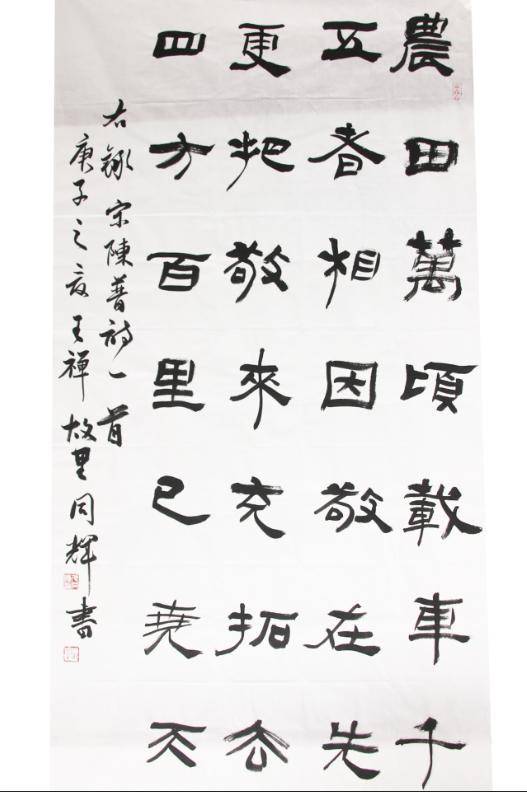 農田萬頃載車千
五者相因敬在先
更把敬來充拓去
四方百里已堯天
右錄宋陳普詩一首
庚子之夏王禪故里同輝書